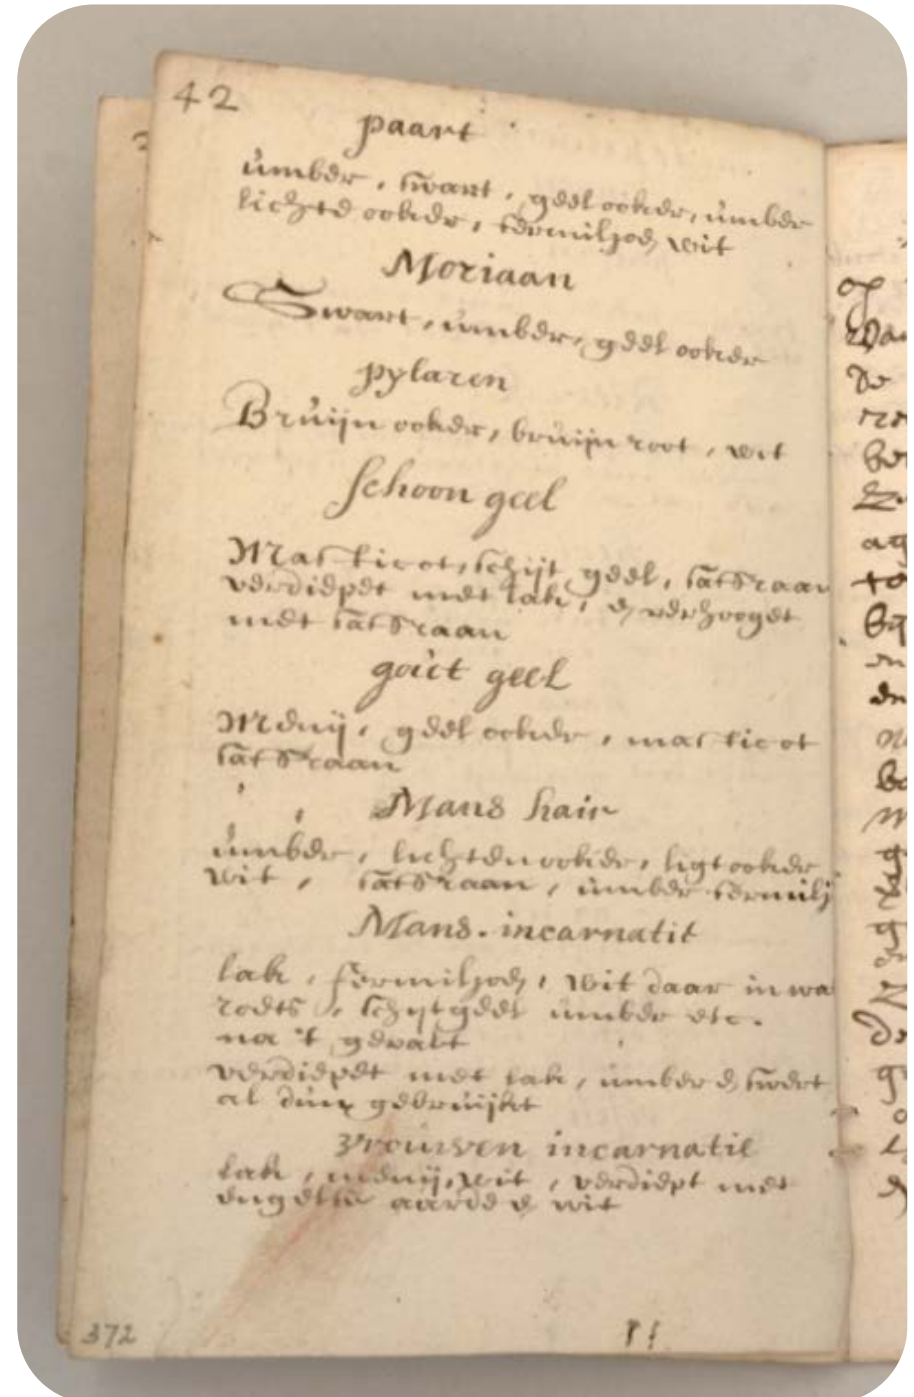 42
paart
ümber, swart, geel ooker, ümber
lichte ooker, fermiljoen, wit
Moriaan
Swart, ümber, geel ooker
pylaren
Brüijn ooker, brüijn root, wit
schoon geel
Masticot, schijt geel, saffraan
verdiepet met lak, en verhooget
met saffraan
goüt geel
Menij, geel ooker, masticot
saffraan
Mans hair
ümber, lichten ooker, ligt ooker
wit, saffraan, ümber fermilj
Mans. incarnatit
lak, fermiljoen, wit daar in wa
roets, schijtgeel ümber etc.
na 't gevalt
verdiepet met lak, ümber en swert
al dün gebrüijkt
vrouwen incarnatie
lak, menij, wit, verdiept met
engelse aarde en wit
372